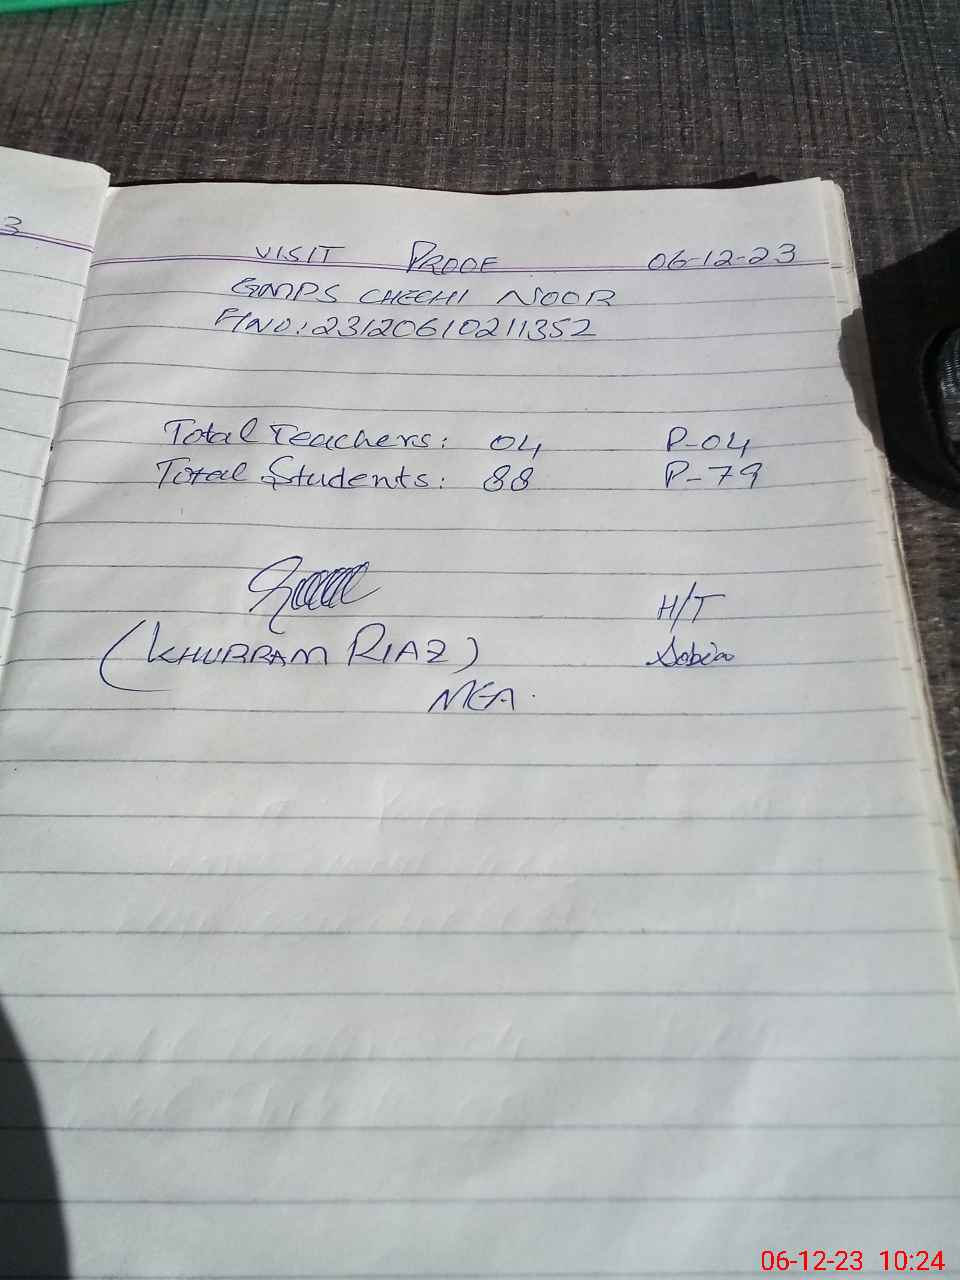 3
VISIT PROOF 06-12-23
GMPS CHECHI NOOR
F/NO: 23120610211352
Total Teachers: 04 P-04
Total Students: 88 P-79
H/T
(KHURRAM RIAZ) Sobia
MEA.
06-12-23 10:24